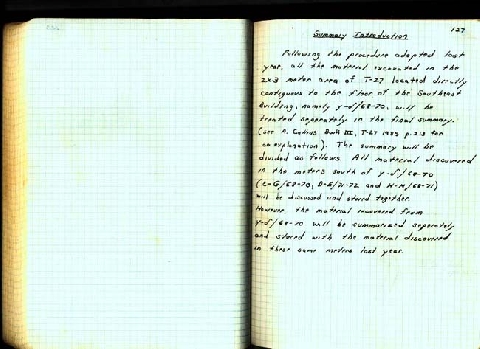 127
Summary Introduction
Following the procedure adopted last
year, all the material excavated in the
2x3 meter area of T-27 located directly
contiguous to the floor of the Southeast
Building, namely y-δ/68-70, will be
treated seperately in the final summary.
(see Book III, p. 213 for
an explanation). The summary will be
divided as follows. All material discovered
in the meters south of y-δ/68-70
will be discussed and stored together.
However the material recovered from
y-δ/68-70 will be summarized seperately
and stored with the material discovered
in these same meters last year.